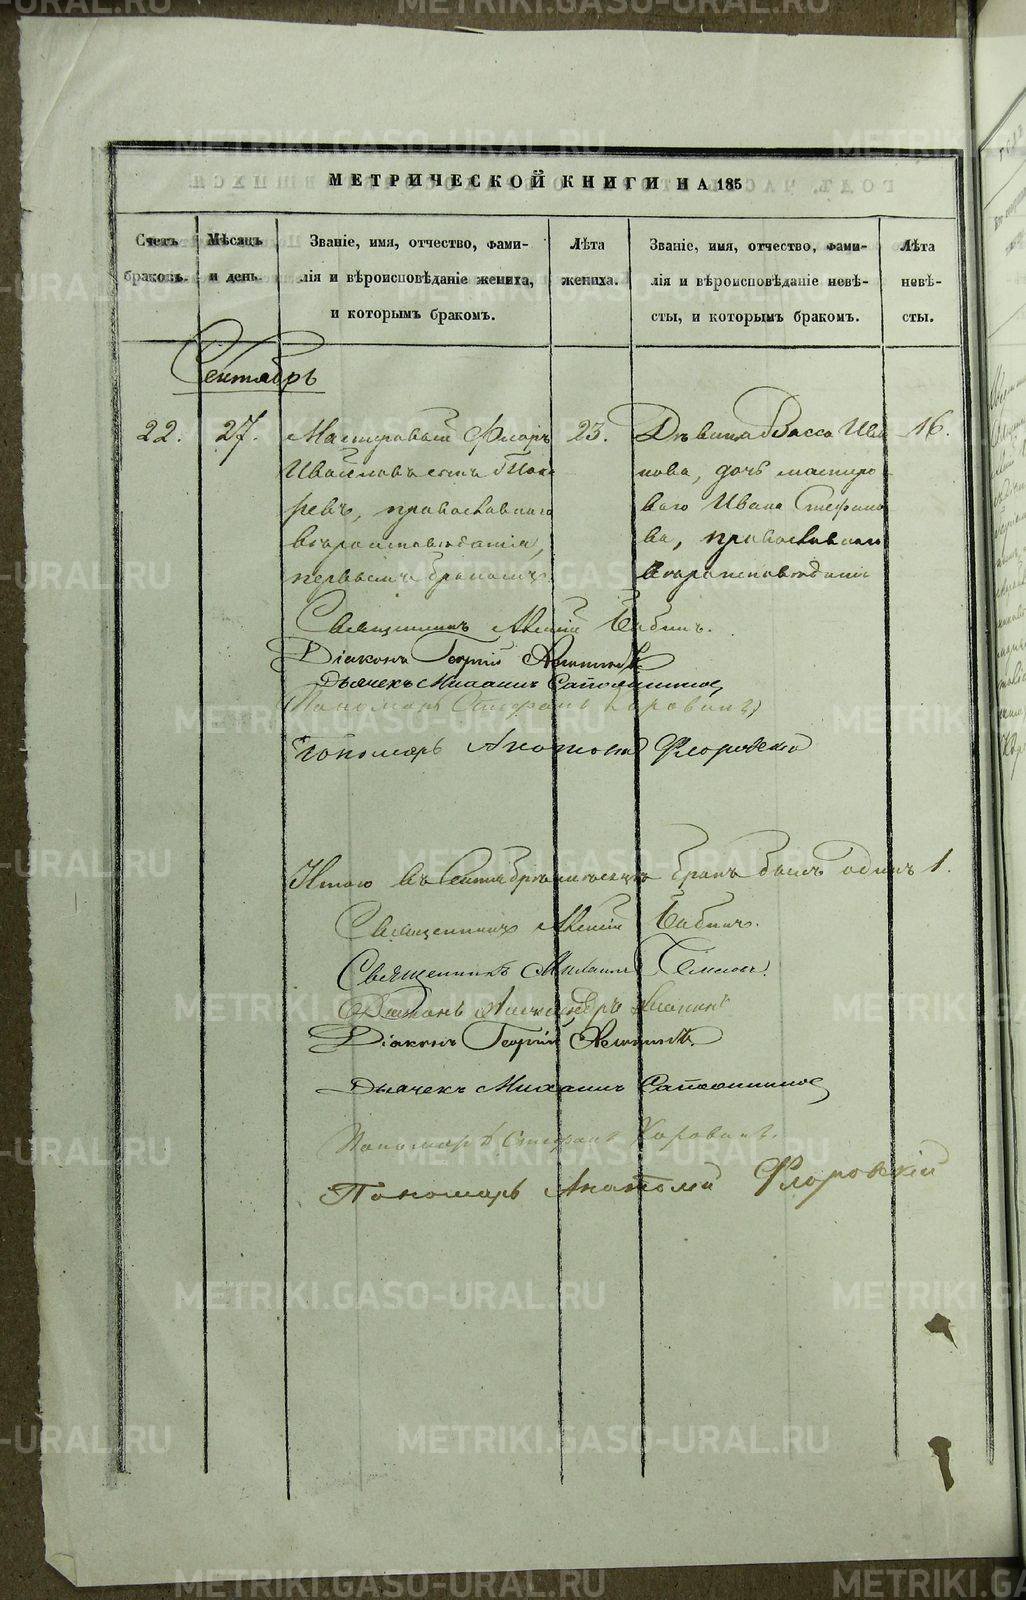 МЕТРИЧЕСКОЙ КНИГИ НА 185
Счетъ браковъ.
Мѣсяцъ и день.
Званіе, имя, отчество, фами-
лія и вѣроисповѣданіе жениха,
и которымъ бракомъ.
Лѣта жениха.
Званіе, имя, отчество, фами-
лія и вѣроисповѣданіе невѣ-
сты, и которымъ бракомъ.
Лѣта невѣ-
сты.
Сентябрь
22. 27.
Мастеровый Флоръ
Токa
ревъ, православнаго
вѣроисповѣданія,
первымъ бракомъ.
23.
Дѣвица Васса Ива
нова, дочь мастеро
ваго Ивана Стефано
ва, православнаго
вѣроисповѣданія
16.
Священникъ Алексій Бабинъ.
Діаконъ Георгій
Дьячекъ Михаилъ
Пономарь Стефанъ Коровинъ
Пономарь Анатолій Флоровскій
Итого въ Сентябрѣ мѣсяцѣ бракъ былъ одинъ 1.
Священникъ Алексій Бабинъ.
Священникъ Михаилъ
Діаконъ Александръ
Діаконъ Георгій
Дьячекъ Михаилъ
Пономарь Стефанъ Коровинъ.
Пономарь Анатолій Флоровскій
METRIKI.GASO-URAL.RU